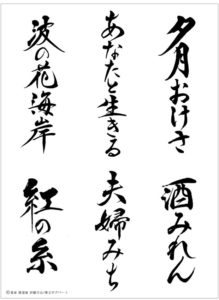 夕月おけさ
あなたと生きる
波の花海岸
酒みれん
夫婦みち
紅の糸